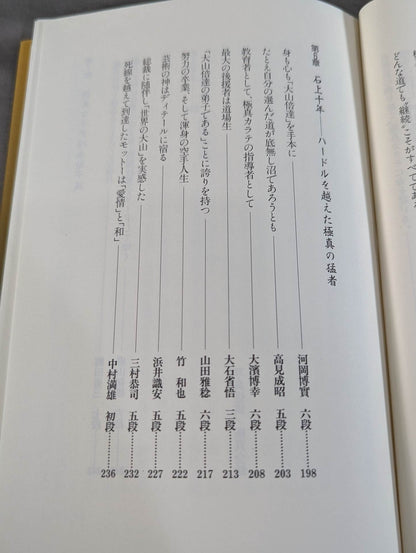 第5章 石上十年――ハードルを越えた極真の猛者
身も心も「大山倍達」を手本に――河岡博實 六段……198
たとえ自分の選んだ道が底無し沼であろうとも――高見成昭 五段……203
教育者として、極真カラテの指導者として――大濱博幸 六段……208
最大の後援者は道場生――大石省悟 三段……213
「大山倍達の弟子である」ことに誇りを持つ――山田雅稔 六段……217
努力の卒業、そして渾身の空手人生――竹 和也 五段……222
芸術の神はディテールに宿る――浜井識安 五段……227
総裁に随伴し「世界の大山」を実感した――三村恭司 五段……232
死線を越えて到達したモットーは「愛情」と「和」――中村満雄 初段……236
どんな道でも、継続"こそがすべてである